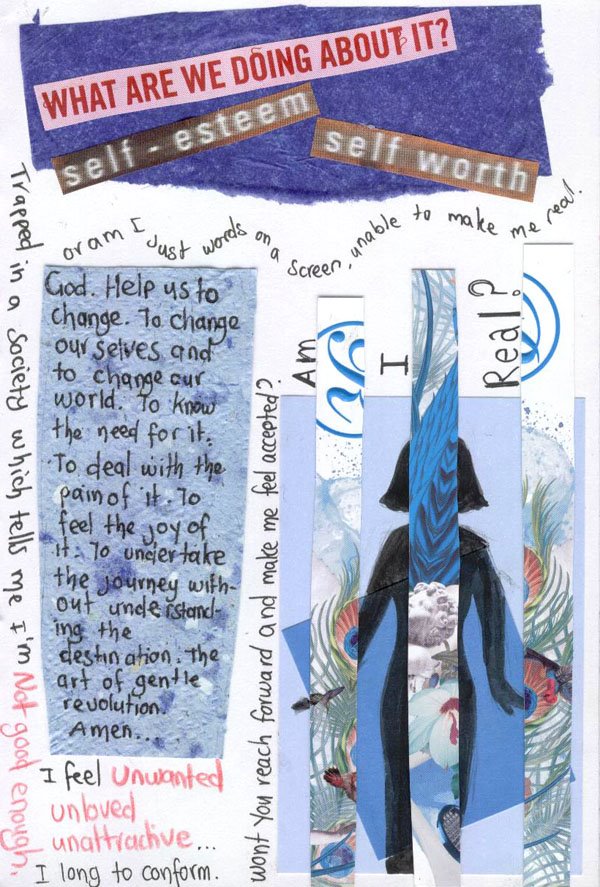 WHAT ARE WE DOING ABOUT IT?
self-esteem
self worth
Trapped in a society which tells me I'm Not good enough,
or am I just words on a screen, unable to make me real.
God. Help us to
change. To change
our selves and
to change our
world. To know
the need for it.
To deal with the
pain of it. To
feel the joy of
it. To undertake
the journey with-
out understand-
ing the
destination. The
art of gentle
revolution.
Amen...
I feel Unwanted
unloved
unattractive...
I long to conform.
wont you reach forward and make me feel accepted?
Am
I
Real?